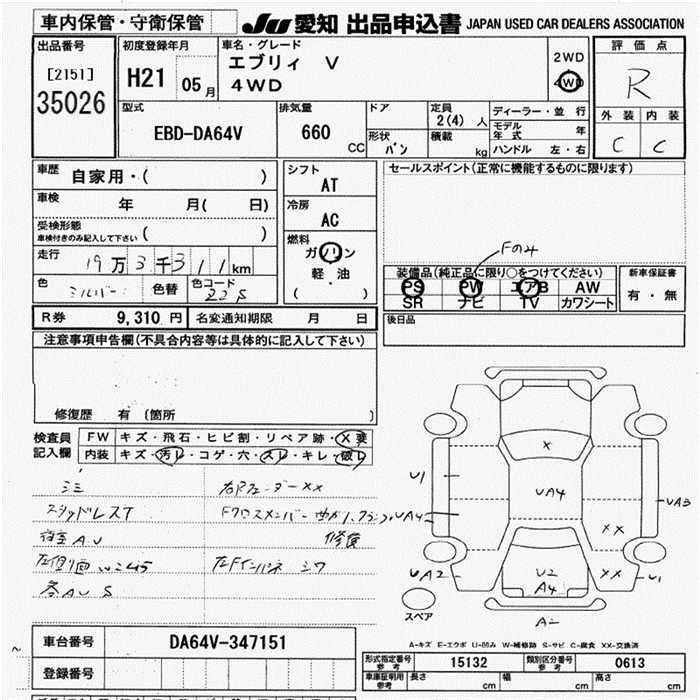 車内保管・守衛保管
JU 愛知 出品申込書 JAPAN USED CAR DEALERS ASSOCIATION
出品番号
[2151]
35026
初度登録年月
H21 05 月
車名・グレード
エブリィ V
4WD
2WD
4WD
評価点
R
外装 内装
C C
型式
EBD-DA64V
排気量
660 CC
ドア
形状
バン
定員
2(4) 人
積載 kg
ディーラー・並行
モデル年式 年
ハンドル 左・右
車歴 自家用・( )
車検 年 月( 日)
受検形態
車検付きのみ記入して下さい ( )
走行 19万3千311km
色 シルバー 色替 色コード Z2S
シフト
AT
冷房
AC
燃料
ガソリン
軽・油
( )
セールスポイント(正常に機能するものに限ります)
Fのみ
装備品(純正品に限り○をつけてください)
PS PW エアB AW
SR ナビ TV カワシート
新車保証書
有・無
後日品
R券 9,310 円 名変通知期限 月 日
注意事項申告欄(不具合内容等は具体的に記入して下さい)
修復歴 有 (箇所 )
検査員
記入欄
FW キズ・飛石・ヒビ割・リペア跡・X要
内装 キズ・汚レ・コゲ・穴・スレ・キレ・破レ
スタッドレスT
各AU S
右Fフェンダー XX
Fクロスメンバー 曲がり
修復
左Fインパネ シワ
X
U1
UA4
UA4
UA3
XX
UA2
U2
A4
XX
U1
A2
スペア
A-キズ E-エクボ U-凹み W-補修跡 S-サビ C-腐食 XX-交換済
車台番号 DA64V-347151
登録番号
形式指定番号
参考
15132
類別区分番号
参考
0613
車庫証明用
参考
長さ cm 幅 cm 高さ cm